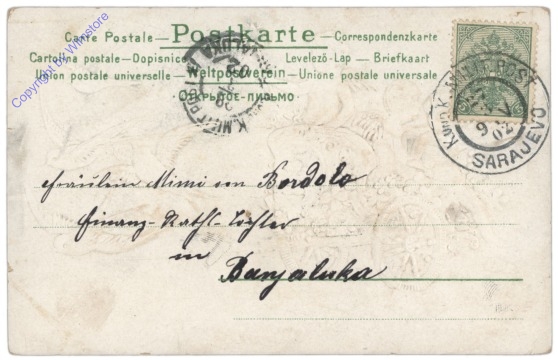 Carte Postale — Postkarte — Correspondenzkarte
Cartolina postale — Dopisnice — Levelező-Lap — Briefkaart
Union postale universelle — Weltpostverein — Unione postale universale
ОТКРЫТОЕ-ПИСЬМО
K.und K. MILIT. POST
6
02
SARAJEVO
K.u.K. MILIT. PO
JALUKA
Fräulein Mimi von Bordolo
Finanz-Raths-Tochter
in
Banjaluka
Copyright by Winstore